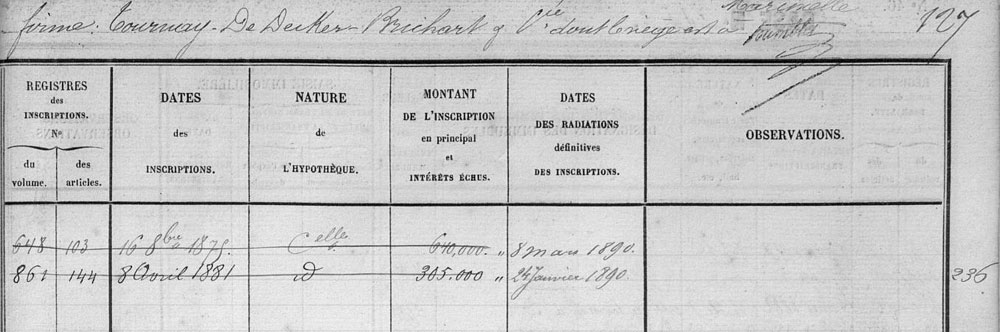 Marcinelle
firme: Tournay-De Decker Brichart & Cie dont le siège est à 127
REGISTRES des INSCRIPTIONS. No
du volume.
des articles.
DATES des INSCRIPTIONS.
NATURE de L'HYPOTHÈQUE.
MONTANT DE L'INSCRIPTION en principal et INTÉRÊTS ÉCHUS.
DATES DES RADIATIONS définitives DES INSCRIPTIONS.
OBSERVATIONS.
648 103 16 8bre 1875. Celle 610,000. " 8 mars 1890.
861 144 8 Avril 1881 d 305.000 " 24 Janvier 1890. 236